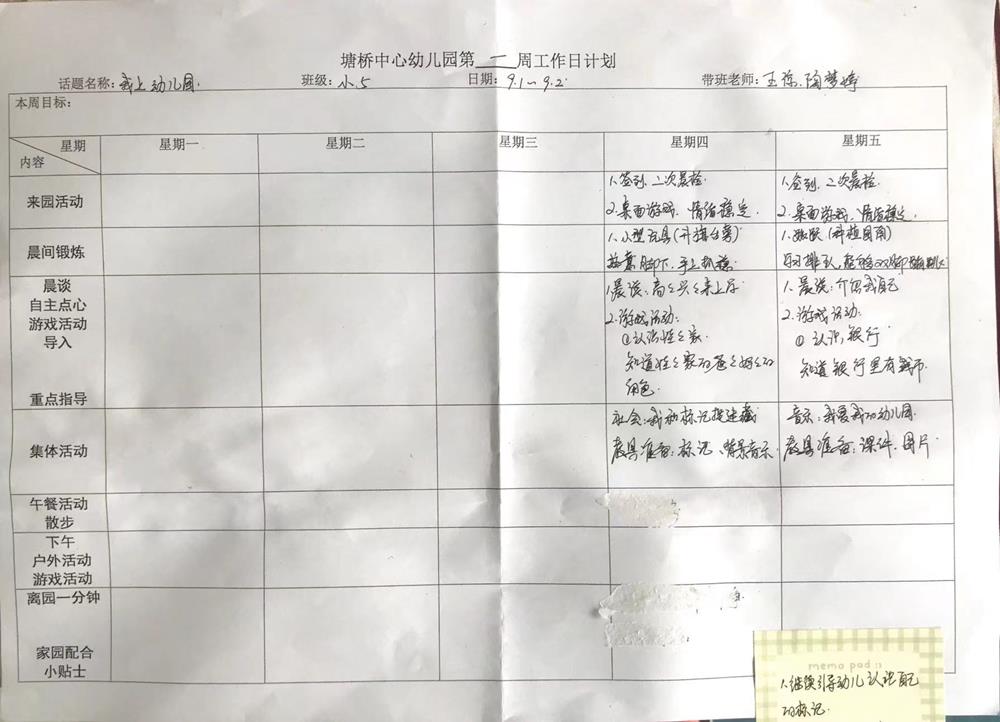 塘桥中心幼儿园第 二 周工作日计划
话题名称：我上幼儿园 班级：小.5 日期：9.1~9.2 带班老师：王 陶梦婷
本周目标：
星期 星期一 星期二 星期三 星期四 星期五
内容
来园活动
1.签到，二次晨检.
2.桌面游戏，情绪稳定.
1.签到，二次晨检.
2.桌面游戏，情绪稳定.
晨间锻炼
1.小型玩具(升旗台旁)
脚下，手上抓稳
1.(种植园角)
排队，双脚
晨谈
自主点心
游戏活动
导入
重点指导
1.晨谈：高高兴兴来上学
2.游戏活动：
①认识娃娃家.
知道娃娃家的爸爸妈妈的
角色.
1.晨谈：介绍我自己
2.游戏活动：
①认识银行
知道银行里有钱币.
集体活动
社会：我和标记捉迷藏
教具准备：标记、背景音乐
音乐：我爱我的幼儿园.
教具准备：课件.图片
午餐活动
散步
下午
户外活动
游戏活动
离园一分钟
家园配合
小贴士
memo pad :)
1.继续引导幼儿认识自己
的标记.